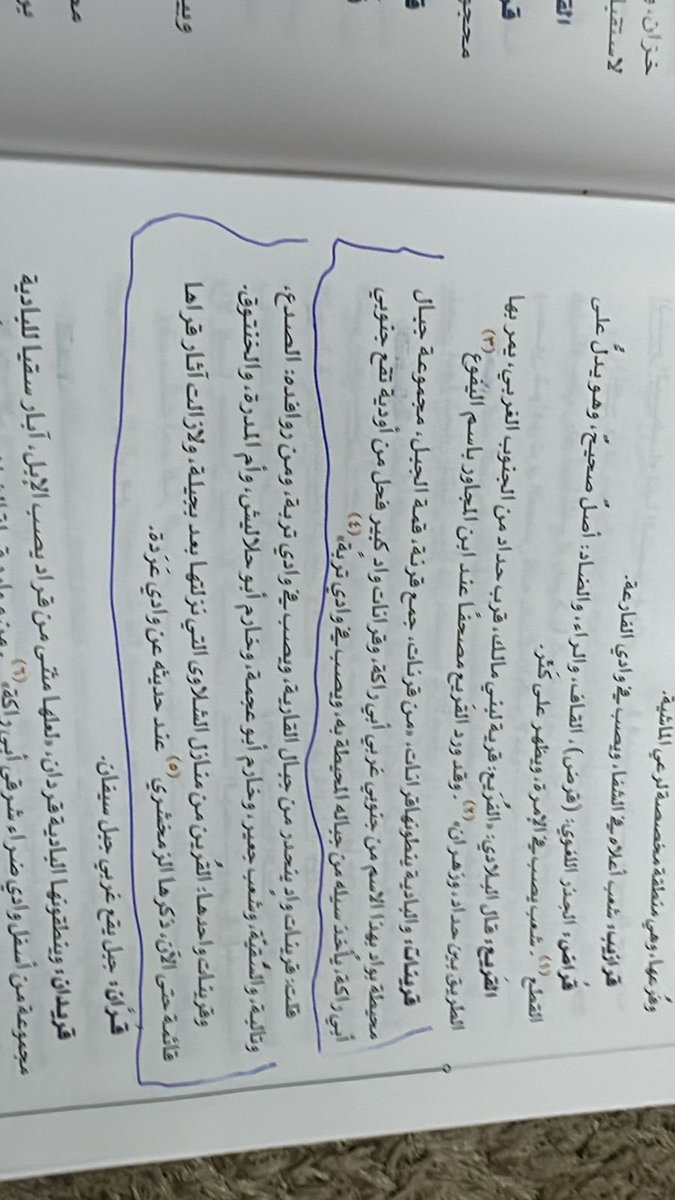 وفرعها، وهي منطقة مخصصة لرعي الماشية.
قرازيب: شعب أعلاه في الشفا، ويصب في وادي الفارعة.
قُراض: الجذر اللغوي: (قرض)، القاف، والراء، والضاد: أصلٌ صحيحٌ، وهو يدلُّ على
القطع (١). شعب يصب في الإمرة، ويظهر على كَثَر.
القريع: قال البلادي: «القُريع: قرية لبني مالك، قرب حداد من الجنوب الغربي، يمر بها
الطريق بين حداد، وزهران» (٢). وقد ورد القريع مصحفًا عند ابن المجاور باسم اليفوع (٣)
قرينات: والبادية ينطقونها قرانات، «من قرنات، جمع قرنة، قمة الجبل، مجموعة جبال
محيطة بواد بهذا الاسم من جنوبي غربي أبي راكة، وقرانات واد كبير فحل من أودية تقع جنوبي
أبي راكة، يأخذ سيله من جباله المحيطة به، ويصب في وادي تربة» (٤)
قلت: قرينات وادٍ ينحدر من جبال القارية، ويصب في وادي تربة، ومن روافده: الصدع،
وتالبة، والسُقيّة، وشعب جعير، وخارم أبو عجمة، وخارم أبو حلاليش، وأم المدرة، والخنتوق.
وقرينات واحدها: القُرين من منازل الشلاوى التي نزلتها بعد بجيلة، ولازالت آثار قراها
قائمة حتى الآن، ذكرها الزمخشري (٥) عند حديثه عن وادي عَرَدة.
قُران: جبل يقع غربي جبل سيفان.
قريدان: وينطقونها البادية قردان، «لعلها مثنى من قراد يصب الإبل، آبار سقيا للبادية
مجموعة من أسفل وادي ضراء شرقي أبي راكة» (٦)
خزان، و